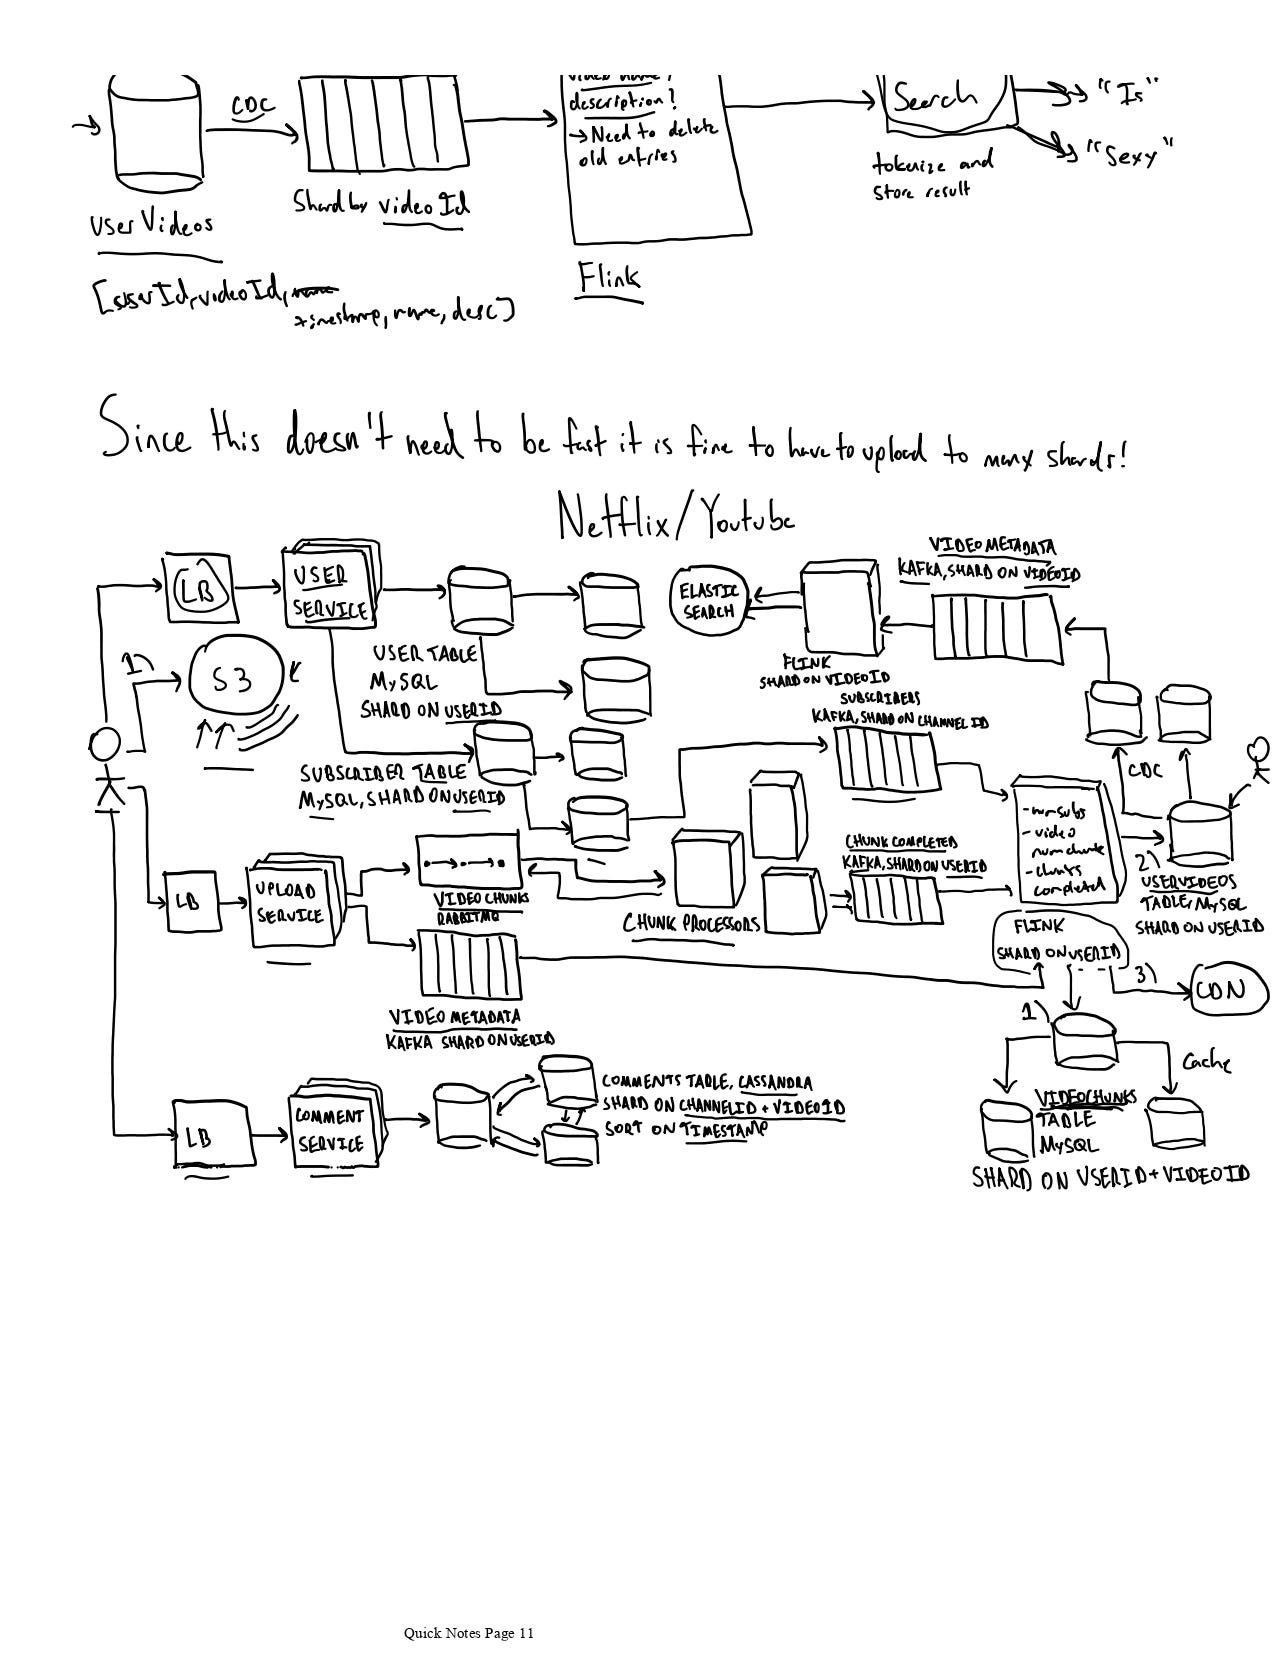 description?
→ Need to delete
old entries
CDC
Search
"Is"
"Sexy"
tokenize and
store result
Shard by videoId
User Videos
Flink
[userId, videoId,
timestamp, name, desc]
Since this doesn't need to be fast it is fine to have to upload to many shards!
Netflix/Youtube
LB
USER
SERVICE
USER TABLE
MySQL
SHARD ON USERID
ELASTIC
SEARCH
FLINK
SHARD ON VIDEOID
VIDEO METADATA
KAFKA, SHARD ON VIDEOID
1)
S3
SUBSCRIBER TABLE
MySQL, SHARD ON USERID
SUBSCRIBERS
KAFKA, SHARD ON CHANNEL ID
CDC
LB
UPLOAD
SERVICE
VIDEO CHUNKS
RABBITMQ
CHUNK PROCESSORS
CHUNK COMPLETED
KAFKA, SHARD ON USERID
- video
num chunks
- chunks
completed
2)
USERVIDEOS
TABLE, MySQL
SHARD ON USERID
FLINK
SHARD ON USERID
3)
CDN
VIDEO METADATA
KAFKA SHARD ON USERID
1)
Cache
VIDEOCHUNKS
TABLE
MySQL
SHARD ON USERID + VIDEOID
LB
COMMENT
SERVICE
COMMENTS TABLE, CASSANDRA
SHARD ON CHANNELID + VIDEOID
SORT ON TIMESTAMP
Quick Notes Page 11